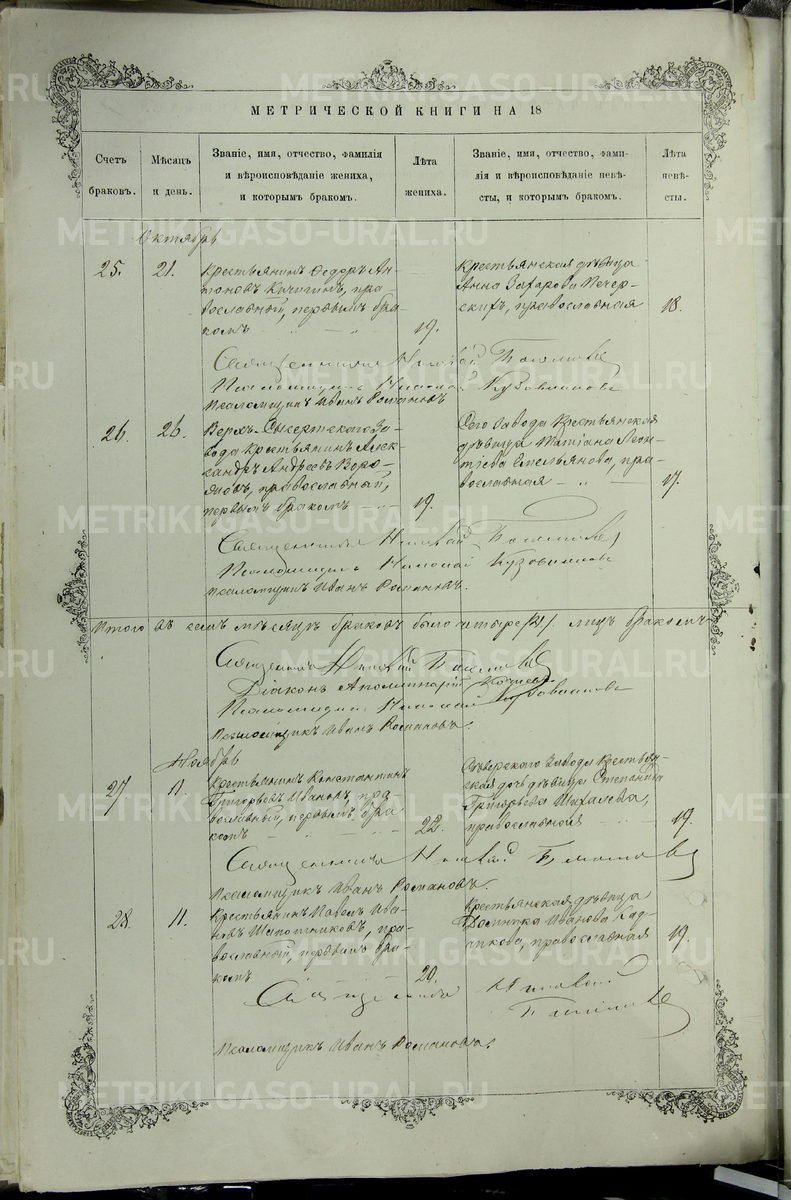 МЕТРИЧЕСКОЙ КНИГИ НА 18
Счетъ
браковъ.
Мѣсяцъ
и день.
Званіе, имя, отчество, фамилія
и вѣроисповѣданіе жениха,
и которымъ бракомъ.
Лѣта
жениха.
Званіе, имя, отчество, фами-
лія и вѣроисповѣданіе невѣ-
сты, и которымъ бракомъ.
Лѣта
невѣ-
сты.
Октябрь
25.
21.
Крестьянинъ Ѳедоръ Ан-
тоновъ Кочигинъ, пра-
вославный, первымъ бра-
комъ
19.
Крестьянская дѣвица
Анна Захарова Печер-
скихъ, православная
18.
Священникъ Николай
Псаломщикъ Николай
Псаломщикъ Иванъ Романовъ
26.
26.
Верхъ-Сысертскаго За-
вода крестьянинъ Алек-
сандръ Андреевъ Воро-
православный,
первымъ бракомъ
19.
Сего Завода крестьянская
дѣвица Татіана Леон-
тіева Емельянова, пра-
вославная
17.
Священникъ Николай
Псаломщикъ Николай
Псаломщикъ Иванъ Романовъ.
Итого въ семъ мѣсяцѣ браковъ было четыре /4/ лицъ бракомъ
Священникъ Николай
Діаконъ Аполлинарій
Псаломщикъ Николай
Псаломщикъ Иванъ Романовъ.
Ноябрь
27
11.
Крестьянинъ Константинъ
Григорьевъ Ивановъ, пра-
вославный, первымъ бра-
комъ
22.
Сѣверскаго Завода крестьян-
ская дочь дѣвица Степанида
Григорьева Михалева,
православная
19.
Священникъ Николай
Псаломщикъ Иванъ Романовъ.
28.
11.
Крестьянинъ Павелъ Ива-
новъ Шапошниковъ, пра-
вославный, первымъ бра-
комъ
20.
Крестьянская дѣвица
Домника Иванова
православная
19.
Священникъ Николай
Псаломщикъ Иванъ Романовъ.
METRIKI.GASO-URAL.RU